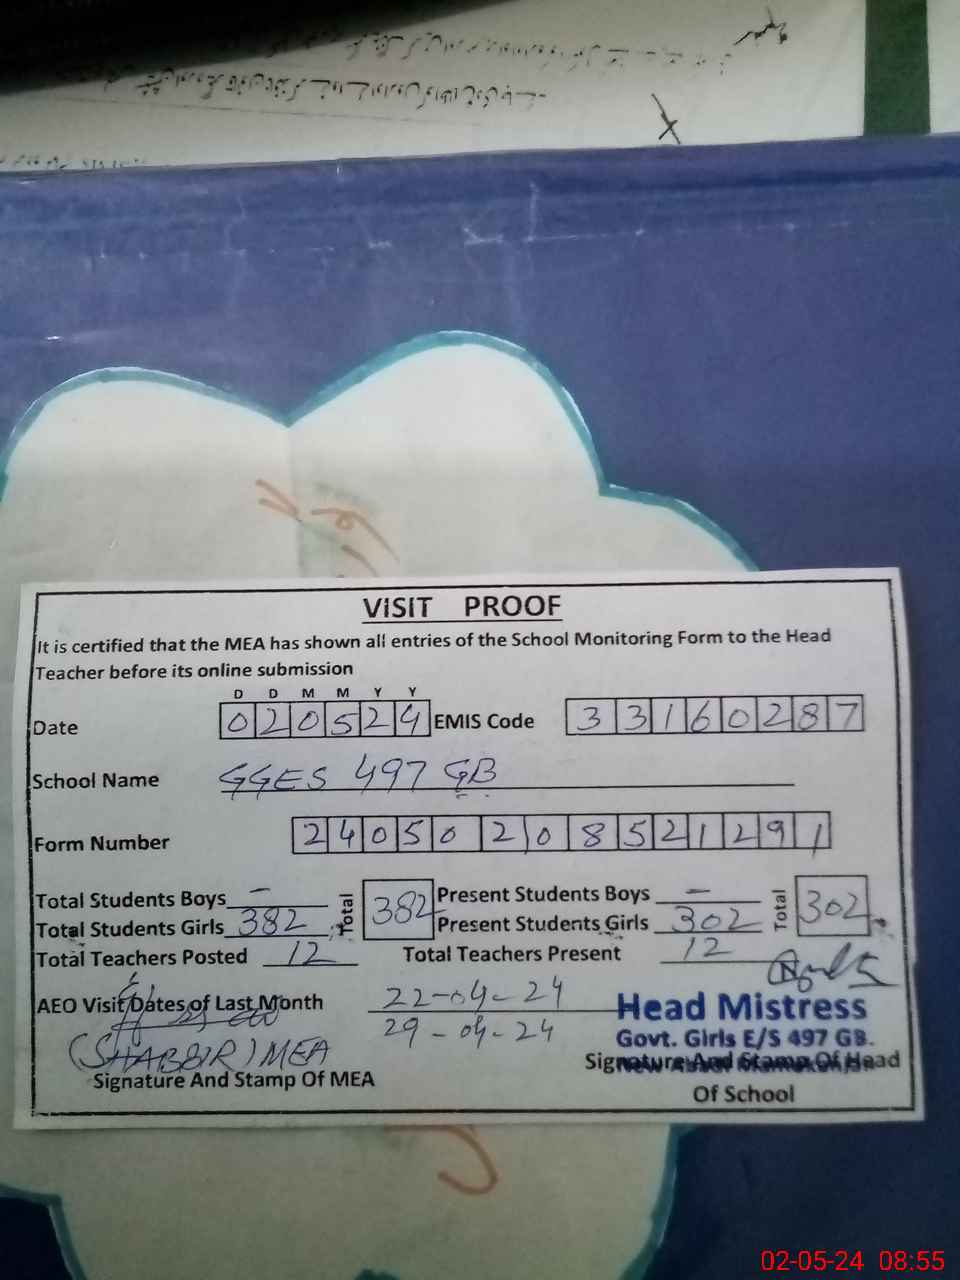 VISIT PROOF
It is certified that the MEA has shown all entries of the School Monitoring Form to the Head
Teacher before its online submission
D D M M Y Y
Date 020524 EMIS Code 33160287
School Name GGES 497 GB
Form Number 24050208521291
Total Students Boys — Total 382 Present Students Boys — Total 302
Total Students Girls 382 Present Students Girls 302
Total Teachers Posted 12 Total Teachers Present 12
AEO Visit Dates of Last Month 22-04-24
29-04-24
Head Mistress
Govt. Girls E/S 497 GB.
(SHABBIR) MEA
Signature And Stamp Of MEA
Signature And Stamp Of Head
Of School
02-05-24 08:55